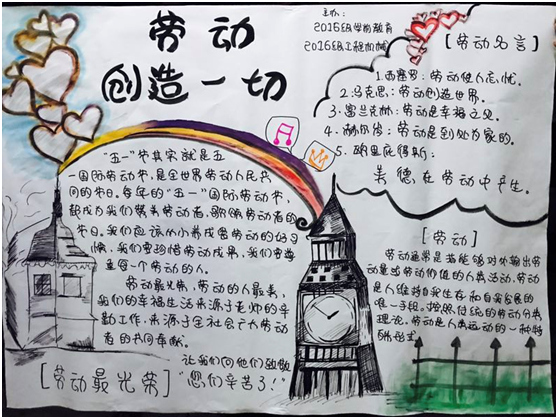 劳动
创造一切
主办:
2016级学前教育
2016级工程机械
[劳动名言]
1.西塞罗:劳动使人忘忧。
2.马克思:劳动创造世界。
3.富兰克林:劳动是幸福之父。
4.赫尔岑:劳动是到处为家的。
美德在劳动中产生。
"五一"节其实就是五
一国际劳动节,是全世界劳动人民共
同的节日。每年的"五一"国际劳动节,
都成为我们赞美劳动者,歌颂劳动者的
节日。我们应该从小养成爱劳动的好习
惯,我们要珍惜劳动成果,我们要尊
重每一个劳动的人。
劳动最光荣,劳动的人最美,
我们的幸福生活来源于老师的辛
勤工作,来源于全社会广大劳动
者的共同奉献。
让我们向他们致敬
"您们辛苦了!"
[劳动最光荣]
[劳动]
劳动通常是指能够对外输出劳
动量或劳动价值的人类活动,劳动
是人维持自我生存和自我发展的
唯一手段。按照传统的劳动分类
理论,劳动是人类运动的一种特
殊形式